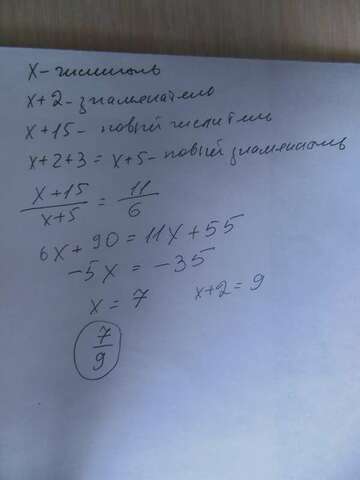 x - числитель
x+2 - знаменатель
x+15 - новый числитель
x+2+3 = x+5 - новый знаменатель
x+15 / x+5 = 11 / 6
6x + 90 = 11x + 55
-5x = -35
x = 7 x+2 = 9
7 / 9